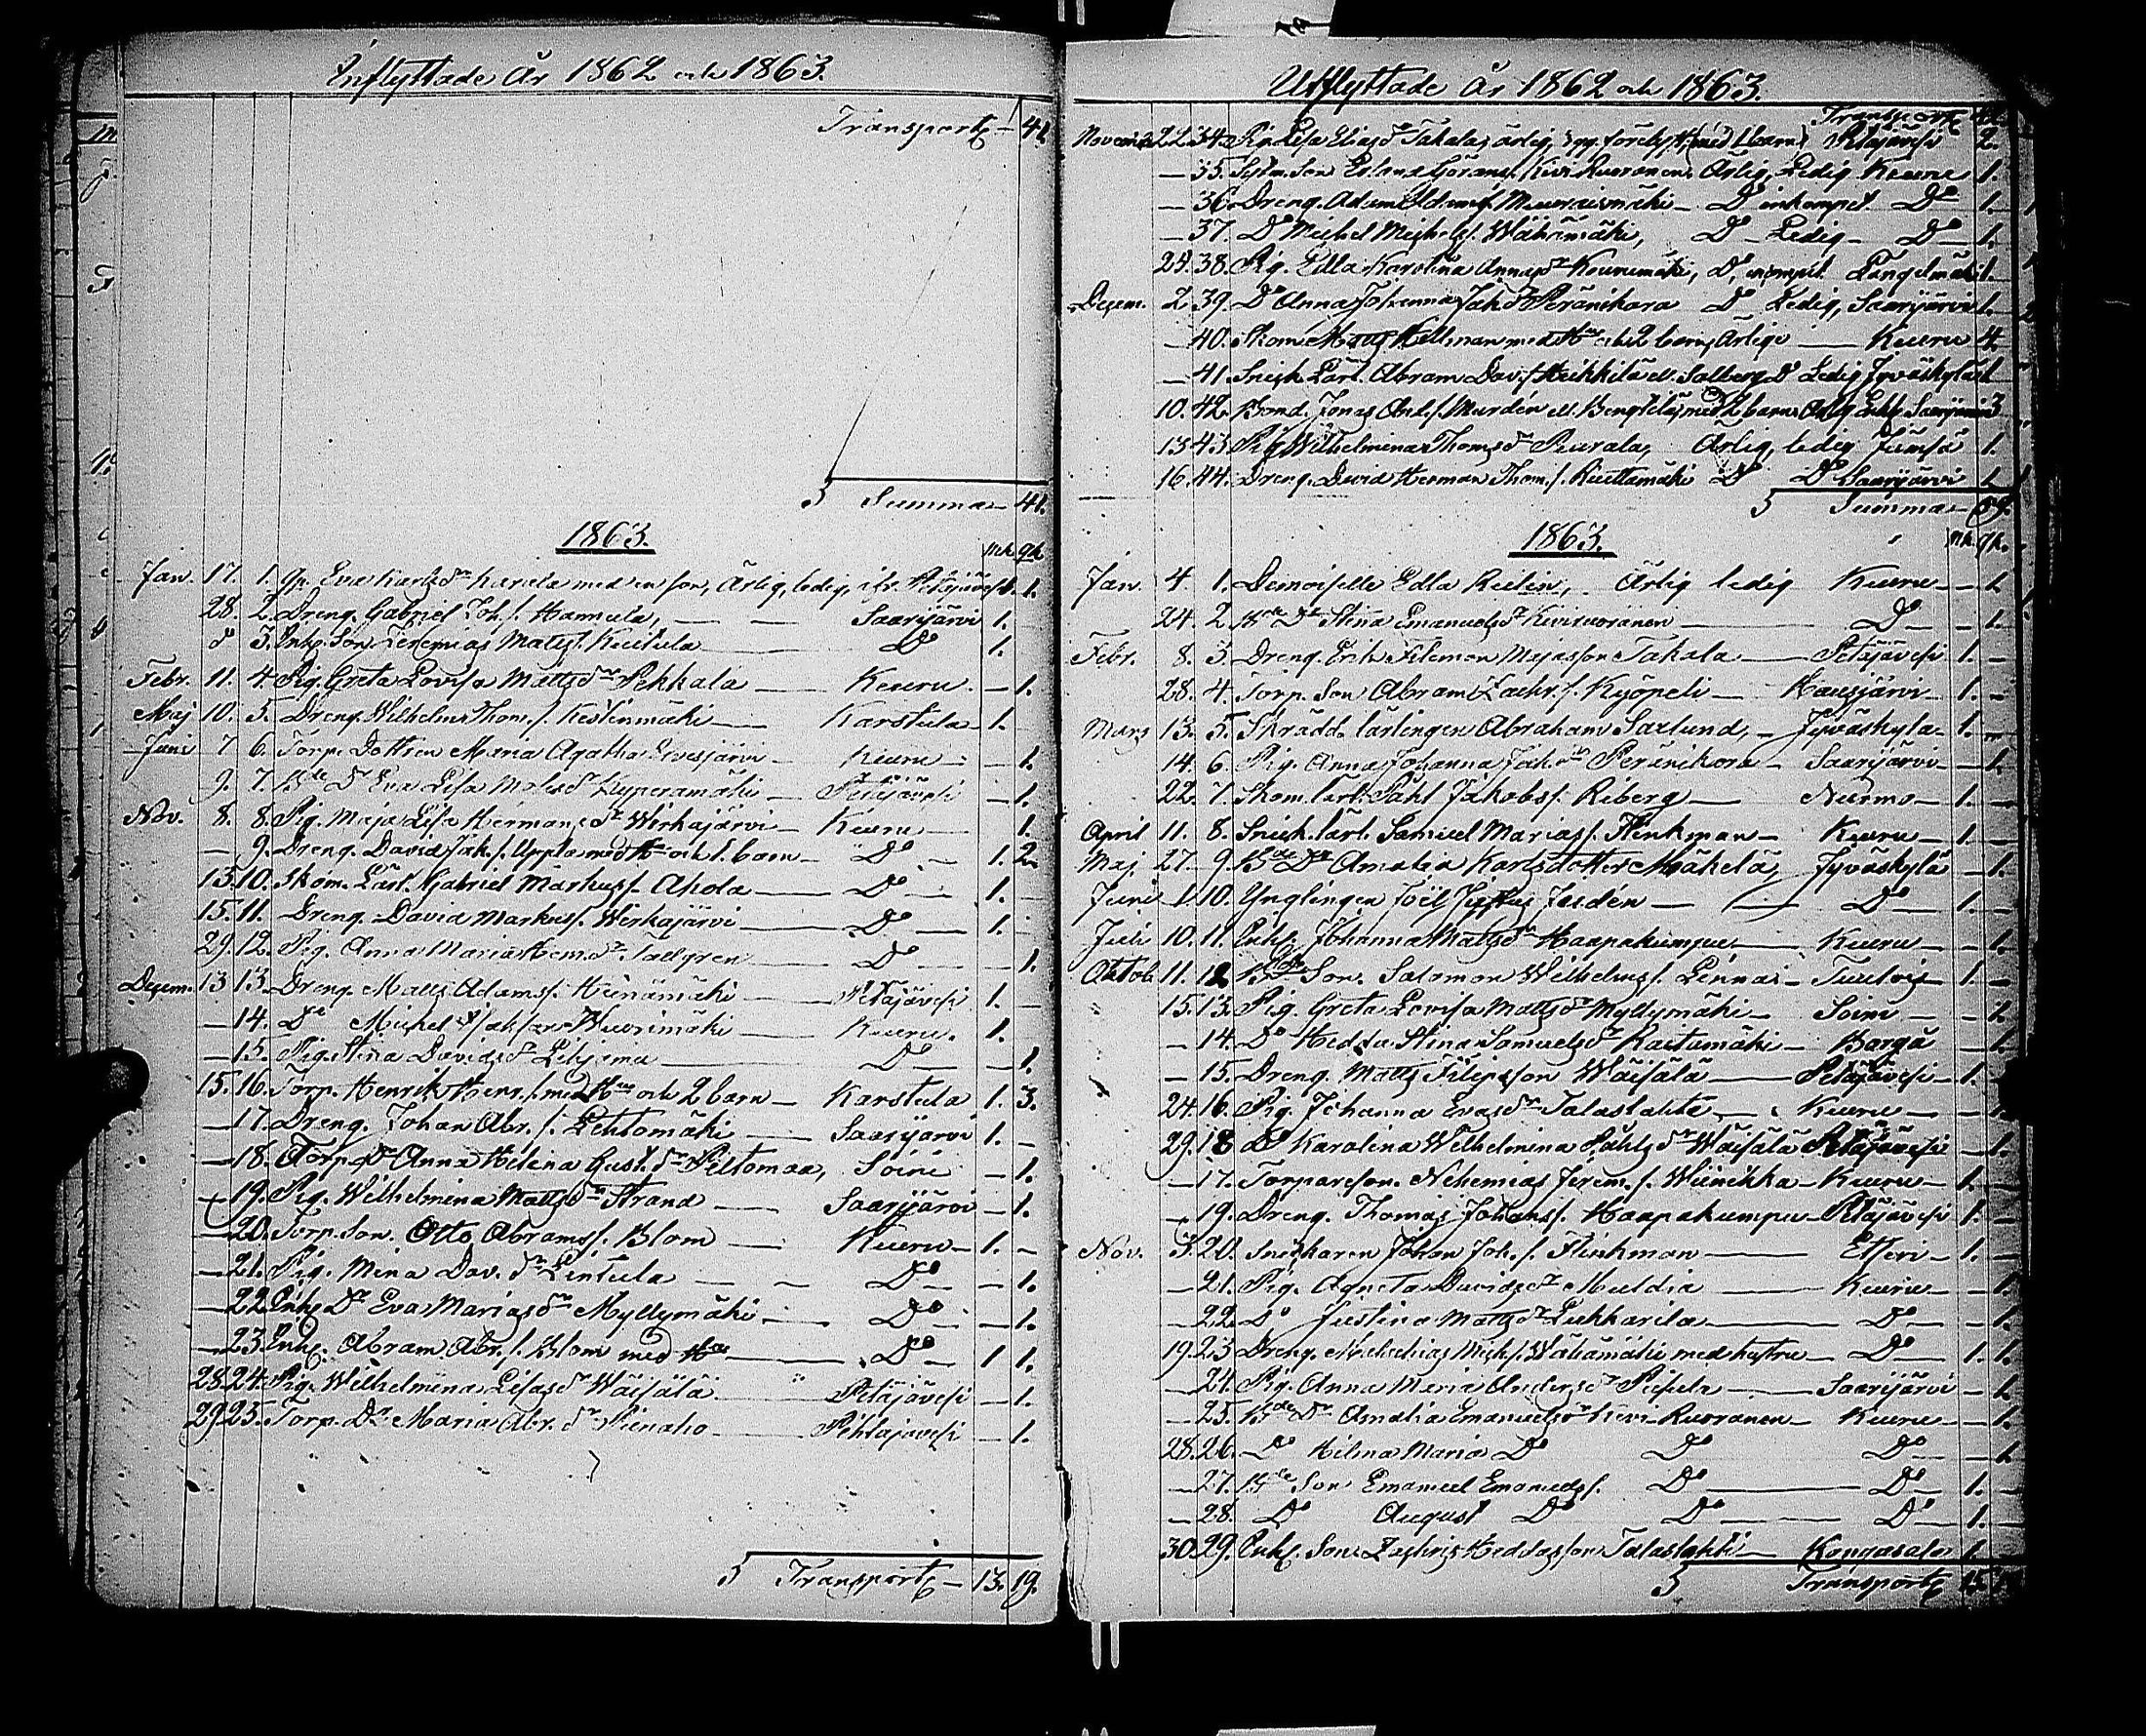 Inflyttade År 1862 och 1863.
Transport — 41
Summa — 41.
1863.
Mk. qk.
Jan. 17. 1. Qp. Eva Karlsdr Karala med en son, Ärlig, ledig, ifr. Petäjävesi 1. 1.
28. 2. Dreng. Gabriel Joh. s. Hannula, — — Saarijärvi 1.
d 3. Inhs. Son Jeremias Matts s. Keulula — Do 1.
Febr. 11. 4. Pig. Greta Lovisa Mattsdr Pekkala — Keuru — 1.
Maj 10. 5. Dreng. Wilhelm Thom. s. Kestinmäki — Karstula 1.
Juni 7 6. Torp. Dottren Maria Agatha — Keuru — 1.
9. 7. Bde Dr Eva Lisa — Petäjävesi — 1.
Nov. 8. 8. Pig. Maja Lisa Hermansdr Werkajärvi — Keuru — 1.
— 9. Dreng. David Jak. s. med Hu och 1. barn — Do — 1. 2.
13. 10. Skom. Lärl. Gabriel Markus s. Ahola — Do — 1.
15. 11. Dreng. David Markus s. Werkajärvi — Do — 1.
29. 12. Pig. Anna Maria Hem.dr Tallgren — Do — 1.
Decem. 13 13. Dreng. Matts Adams s. Heinämäki — Petäjävesi 1. —
— 14. Do Michel Wuorimäki — Keuru. 1.
— 15. Pig. Stina Davidsdr — Do — 1.
15. 16. Torp. Henrik Henr. s. med Hu och 2 barn — Karstula 1. 3.
— 17. Dreng. Johan Abr. s. Lehtomäki — Saarijärvi 1. —
— 18. Torp. Dr Anna Helena Gust.dr Peltomaa, Soini — 1.
— 19. Pig. Wilhelmina Mattsdr Strand — Saarijärvi — 1.
— 20. Torp. Son. Otto Abrams s. Blom — Keuru — 1. —
— 21. Pig. Mina Dav. dr Lintula — — Do — 1.
— 22. Inhs Dr Eva Mariasdr Myllymäki — Do — 1.
— 23. Inhs. Abram Abr. s. Blom med Hu — Do — 1 1.
28. 24. Pig. Wilhelmina Lisasdr Wäisälä " Petäjävesi — 1.
29. 25. Torp. Dr Maria Abr. dr Pienaho — Pehtäjävesi — 1.
Transport — 13. 19.
Utflyttade År 1862 och 1863.
Transport
November 22. 34. Pig. Lisa Eliasdr Takala, ärlig, (med 1 barn) Petäjävesi 2.
— 35. Son Kivi Ruoranen, Ärlig, Ledig Keuru 1.
— 36. Dreng. Adam Meuraismäki — Do Do 1.
— 37. Do Michel Michels s. Wähämäki, Do — Ledig — Do — 1.
24. 38. Pig. Edla Karolina Annasdr Do Längelmäki 1.
Decem. 2. 39. Do Anna Johanna Jak.dr Peränikara Do Ledig, Saarijärvi 1.
— 40. Skom. Matts Kellman med Hu och 2 barn, Ärlige — Keuru 4.
— 41. Snick. Lärl. Abram Dav. s. Heikkilä el. Salberg Do Ledig Jyväskylä 1
10. 42. Bond. Jonas And. s. Murdén el Bengtilä, med 2 barn Saarijärvi 3
13 43. Pig Wilhelmina Thomsdr Peurala, Ärlig, ledig Jämsä 1.
16. 44. Dreng. David Herman Thom. s. Do Do Saarijärvi 1.
Summa — 59.
1863.
Mk. qk.
Jan. 4. 1. Demoiselle Edla Reilin, Ärlig ledig Keuru — 1.
24. 2. Bde Dr Stina Emanuelsdr Kiviruoranen — Do — 1.
Febr. 8. 3. Dreng. Erik Filemon Majasson Takala — Petäjävesi 1. —
28. 4. Torp. Son Abram Zachr. s. Kyöpeli — Hausjärvi 1. —
Mars 13. 5. Skrädd. lärlingen Abraham Saxlund, — Jyväskylä — 1. —
14. 6. Pig. Anna Johanna Jak.dr Peränikara — Saarijärvi — 1.
22. 7. Skom. lärl. Påhl Jakobs s. Riberg — Nurmo — 1. —
April 11. 8. Snick. lärl. Samuel Marias s. Flinkman — Keuru — 1. —
Maj. 27. 9. Bde Dr Amalia Karlsdotter Mäkelä, Jyväskylä — 1.
Juni 1. 10. Ynglingen Joel Justus Jasdén — Do — 1. —
Juli 10. 11. Enkf. Johanna Mattsdr Haapakumpu — Keuru — 1.
Oktob. 11. 12. Bde Son. Salomon Wilhelms s. — 1. —
15. 13. Pig. Greta Lovisa Mattsdr Myllymäki — Soini — 1.
— 14. Do Hedda Stina Samuelsdr Kaitumäki — Borgå — 1.
— 15. Dreng. Matts Filipsson Wäisälä — Petäjävesi — 1.
24. 16. Pig. Johanna Evasdr Talaslahti — Keuru — 1.
29. 18 Do Karolina Wilhelmina Påhlsdr Wäisälä Petäjävesi — 1.
— 17. Torpareson. Nehemias Jerem. s. — Keuru — 1.
— 19. Dreng. Thomas Johans s. Haapakumpu — Petäjävesi 1. —
Nov. 3. 20. Snickaren Johan Joh. s. Flinkman — Etseri — 1. —
— 21. Pig. Agneta Davidsdr Multia — Keuru — 1.
— 22. Do Justina Mattsdr Liukkarila — Do — 1.
19. 23 Dreng. Mich. s. Wähämäki med hustru — Do — 1. 1.
— 24. Pig. Anna Maria Andersdr — Saarijärvi — 1.
— 25. Bde Dr Amalia Emanuelsdr Kivi Ruoranen — Keuru — 1.
28. 26. Do Hilma Maria Do Do Do — 1.
— 27. Bde Son Emanuel Emanuels s. Do — Do — 1. —
— 28. Do August Do Do — Do — 1. —
30. 29. Inhs. Son Zachris Heddasson Talaslahti — Kangasala 1.
Transport 15.